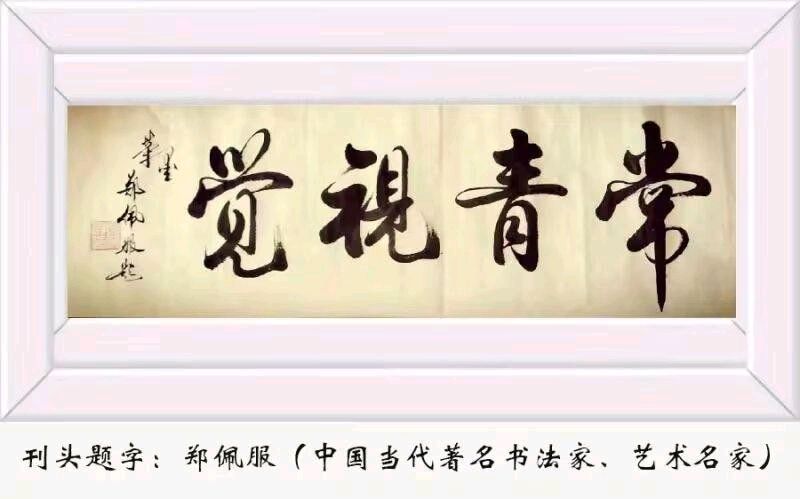 常青視觉
郑佩服题
刊头题字：郑佩服（中国当代著名书法家、艺术名家）